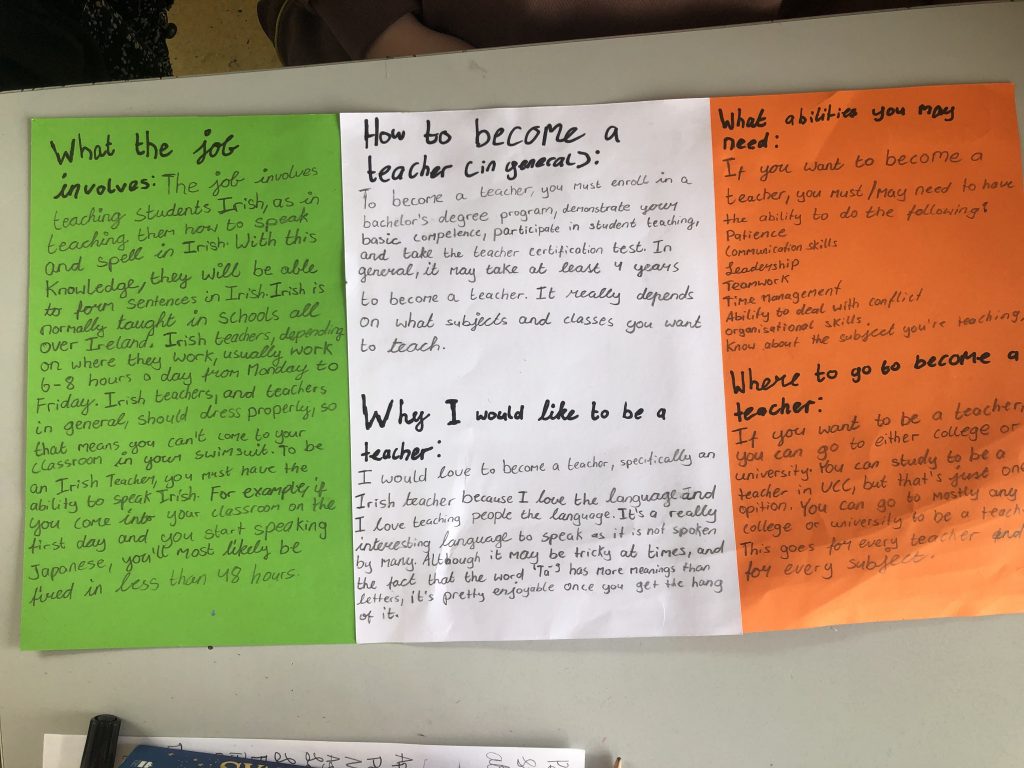 What the job
involves: The job involves
teaching students Irish, as in
teaching them how to speak
and spell in Irish. With this
Knowledge, they will be able
to form sentences in Irish. Irish is
normally taught in schools all
over Ireland. Irish teachers, depending
on where they work, usually work
6-8 hours a day from Monday to
Friday. Irish teachers, and teachers
in general, should dress properly, so
that means you can't come to your
classroom in your swimsuit. To be
an Irish Teacher, you must have the
ability to speak Irish. For example, if
you come into your classroom on the
first day and you start speaking
Japanese, you'll most likely be
fired in less than 48 hours.
How to become a
teacher (in general):
To become a teacher, you must enroll in a
bachelor's degree program, demonstrate your
basic competence, participate in student teaching,
and take the teacher certification test. In
general, it may take at least 4 years
to become a teacher. It really depends
on what subjects and classes you want
to teach.
Why I would like to be a
teacher:
I would love to become a teacher, specifically an
Irish teacher because I love the language and
I love teaching people the language. It's a really
interesting language to speak as it is not spoken
by many. Although it may be tricky at times, and
the fact that the word "Tá" has more meanings than
letters, it's pretty enjoyable once you get the hang
of it.
What abilities you may
need:
If you want to become a
teacher, you must/may need to have
the ability to do the following:
Patience
Communication skills
Leadership
Teamwork
Time Management
Ability to deal with conflict
organisational skills
Know about the subject you're teaching.
Where to go to become a
teacher:
If you want to be a teacher,
you can go to either college or
university. You can study to be a
teacher in UCC, but that's just one
opition. You can go to mostly any
college or university to be a
This goes for every teacher and
for every subject.